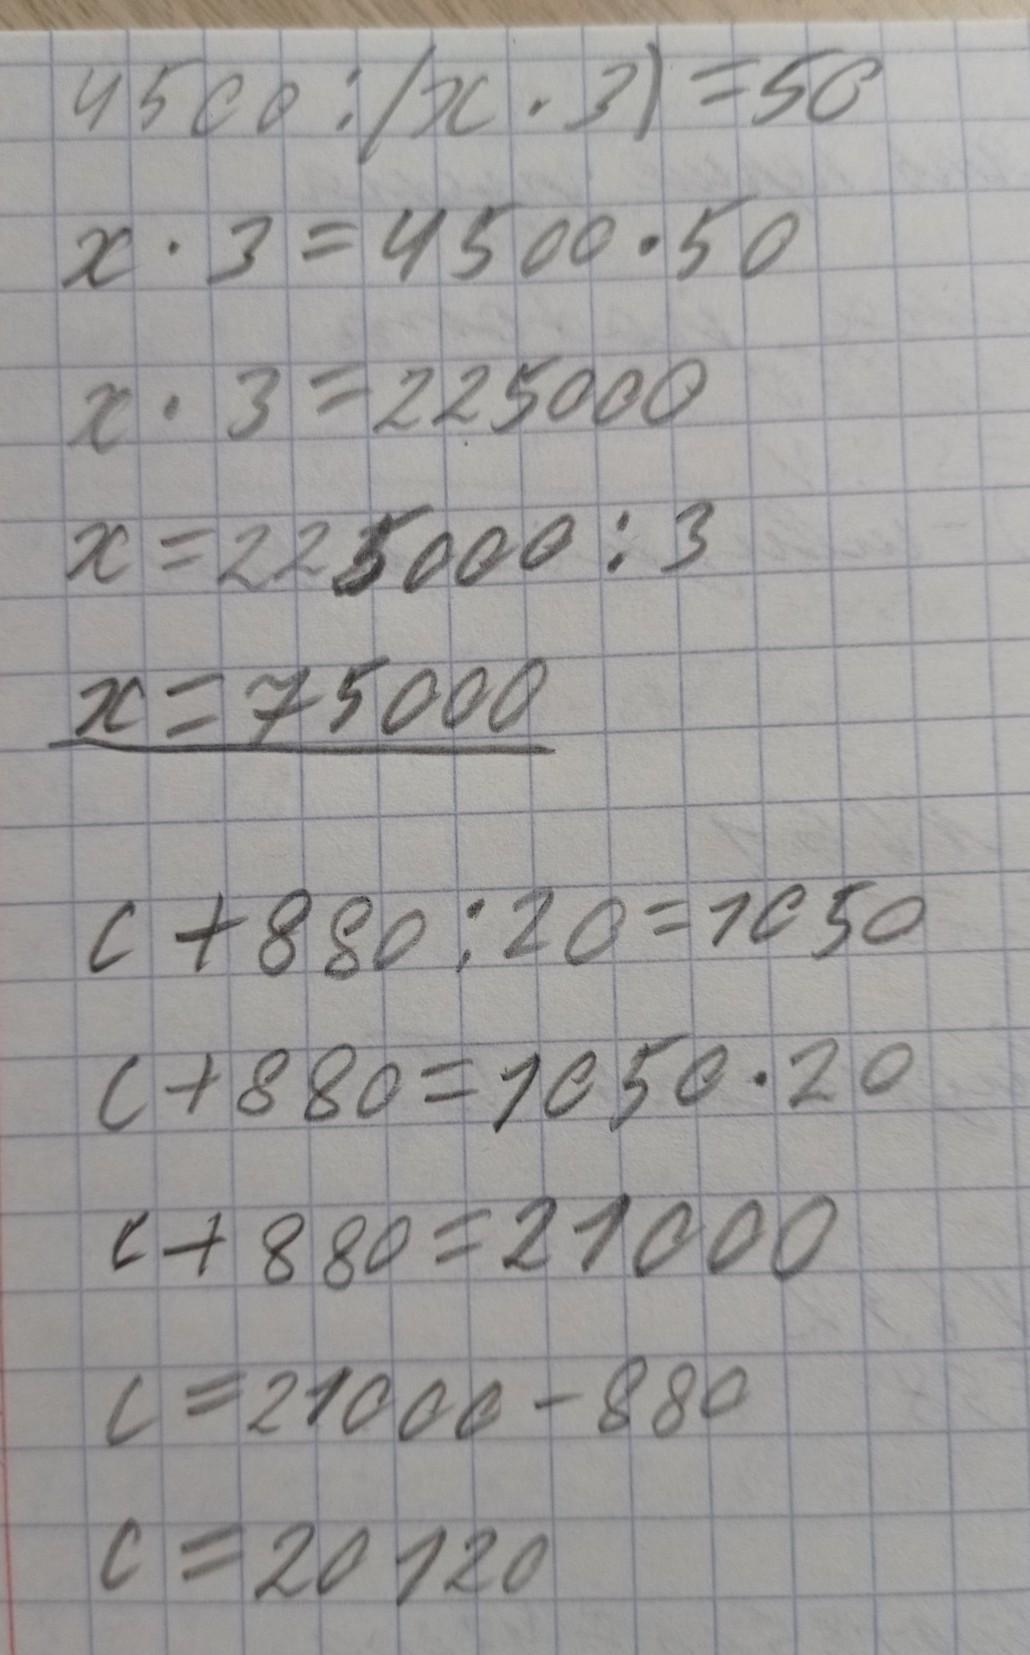 4500:(x·3)=50
x·3=4500·50
x·3=225000
x=225000:3
x=75000
c+880:20=1050
c+880=1050·20
c+880=21000
c=21000-880
c=20120